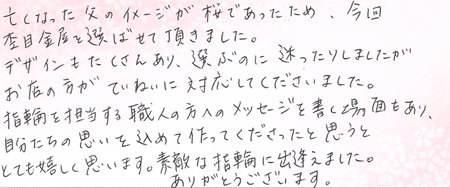 亡くなった父のイメージが桜であったため、今回
杢目金屋を選ばせて頂きました。
デザインもたくさんあり、選ぶのに迷ったりしましたが
お店の方がていねいに対応してくださいました。
指輪を担当する職人の方へのメッセージを書く場面もあり、
自分たちの思いを込めて作ってくださったと思うと
とても嬉しく思います。素敵な指輪に出逢えました。
ありがとうございます。